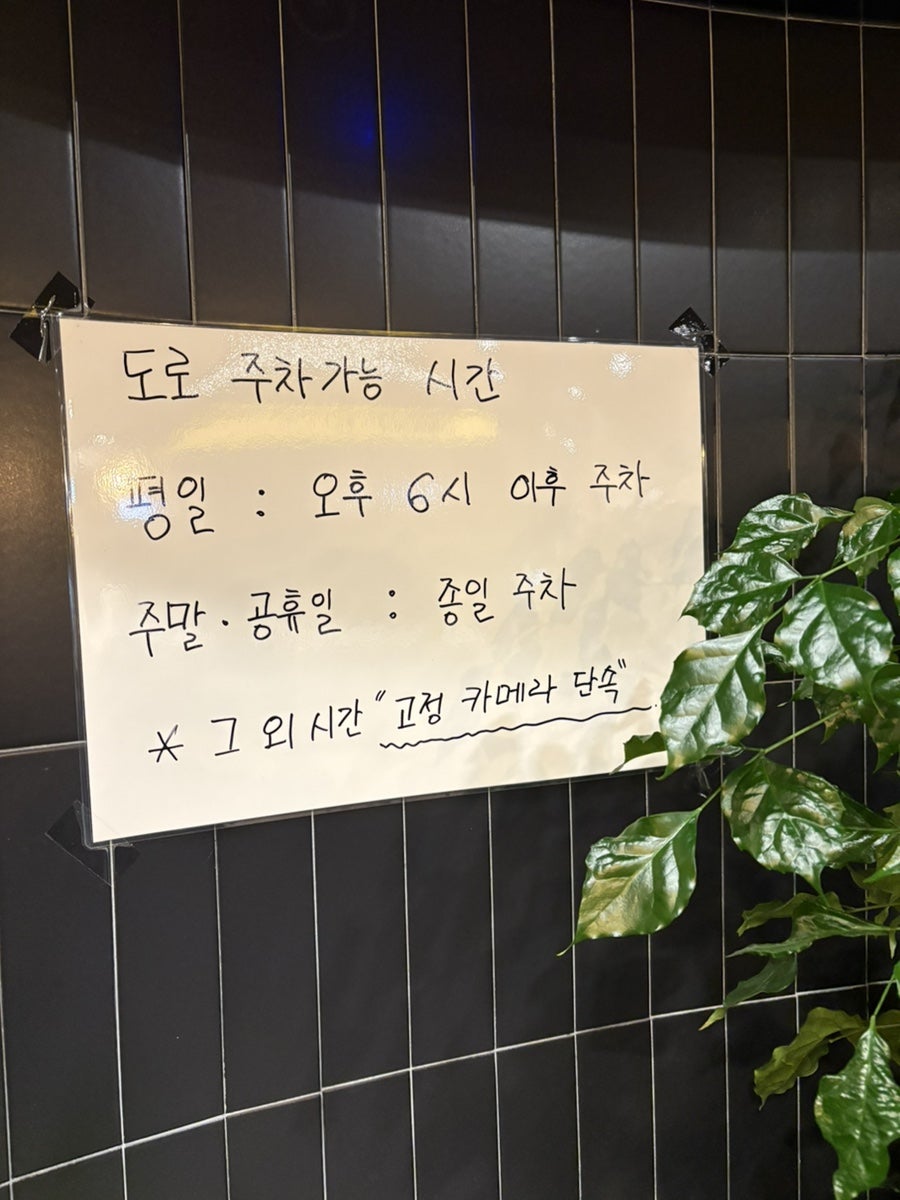 도로 주차가능 시간
평일 : 오후 6시 이후 주차
주말·공휴일 : 종일 주차
* 그 외 시간 "고정 카메라 단속"